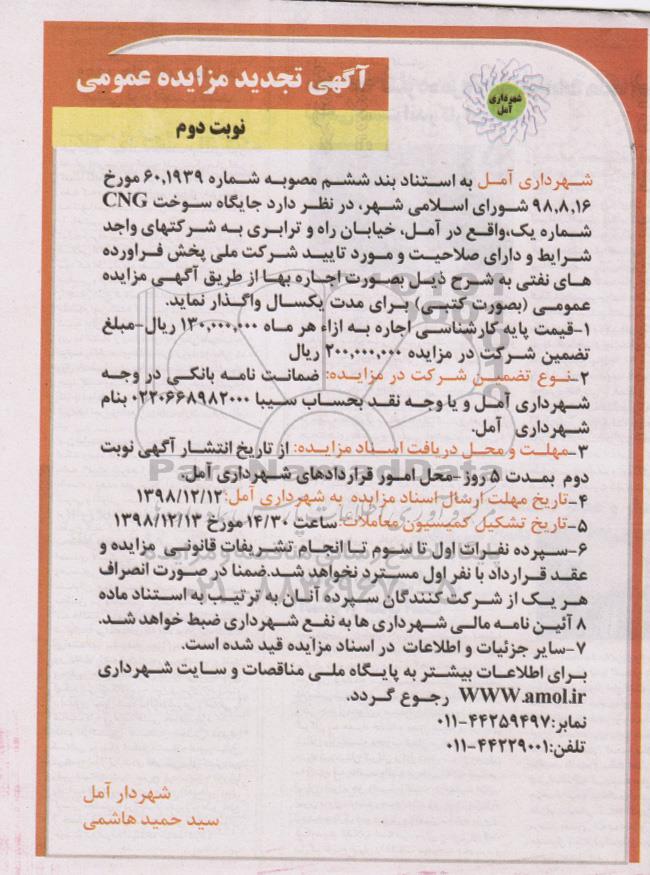 آگهی تجدید مزایده عمومی
نوبت دوم
شهرداری
آمل
شهرداری آمل به استناد بند ششم مصوبه شماره ۶۰,۱۹۳۹ مورخ
۹۸,۸,۱۶ شورای اسلامی شهر، در نظر دارد جایگاه سوخت CNG
شماره یک،واقع در آمل، خیابان راه و ترابری به شرکتهای واجد
شرایط و دارای صلاحیت و مورد تایید شرکت ملی پخش فراورده
های نفتی به شرح ذیل بصورت اجاره بها از طریق آگهی مزایده
عمومی (بصورت کتبی) برای مدت یکسال واگذار نماید.
۱-قیمت پایه کارشناسی اجاره به ازاء هر ماه ۱۳۰,۰۰۰,۰۰۰ ریال-مبلغ
تضمین شرکت در مزایده ۲۰۰,۰۰۰,۰۰۰ ریال
۲-نوع تضمین شرکت در مزایده: ضمانت نامه بانکی در وجه
شهرداری آمل و یا وجه نقد بحساب سیبا ۰۲۲۰۶۶۸۹۸۲۰۰۰ بنام
شهرداری آمل.
۳-مهلت و محل دریافت اسناد مزایده: از تاریخ انتشار آگهی نوبت
دوم بمدت ۵ روز-محل امور قراردادهای شهرداری آمل.
۴-تاریخ مهلت ارسال اسناد مزایده به شهرداری آمل:۱۳۹۸/۱۲/۱۲
۵-تاریخ تشکیل کمیسیون معاملات:ساعت ۱۴/۳۰ مورخ ۱۳۹۸/۱۲/۱۳
۶-سپرده نفرات اول تا سوم تا انجام تشریفات قانونی مزایده و
عقد قرارداد با نفر اول مسترد نخواهد شد.ضمنا در صورت انصراف
هر یک از شرکت کنندگان سپرده آنان به ترتیب به استناد ماده
۸ آئین نامه مالی شهرداری ها به نفع شهرداری ضبط خواهد شد.
۷-سایر جزئیات و اطلاعات در اسناد مزایده قید شده است.
برای اطلاعات بیشتر به پایگاه ملی مناقصات و سایت شهرداری
WWW.amol.ir رجوع گردد.
نمابر:۴۴۲۵۹۴۹۷-۰۱۱
تلفن:۴۴۲۲۹۰۰۱-۰۱۱
شهردار آمل
سید حمید هاشمی
ParsNamadData